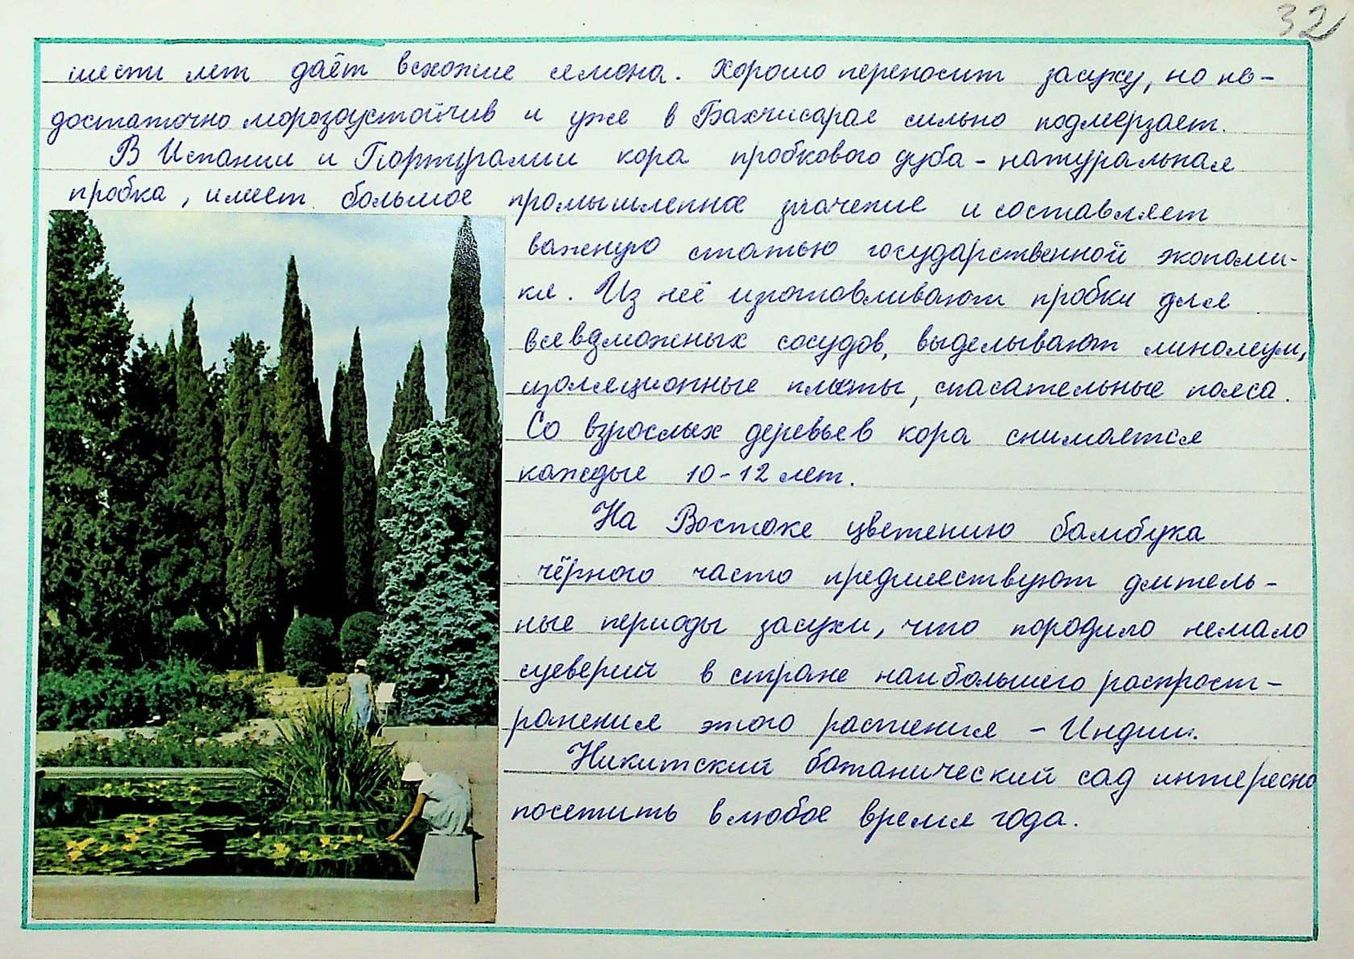 32
шести лет даёт всхожие семена. Хорошо переносит засуху, но не-
достаточно морозоустойчив и уже в Бахчисарае сильно подмерзает.
В Испании и Португалии кора пробкового дуба - натуральная
пробка, имеет большое промышленное значение и составляет
важную статью государственной экономи-
ки. Из неё изготовливают пробки для
всевозможных сосудов, выделывают линолеум,
изоляционные плиты, спасательные пояса.
Со взрослых деревьев кора снимается
каждые 10-12 лет.
На Востоке цветению бамбука
чёрного часто предшествуют длитель-
ные периоды засухи, что породило немало
суеверий в стране наибольшего распрост-
ранения этого растения - Индии.
Никитский ботанический сад интересно
посетить в любое время года.